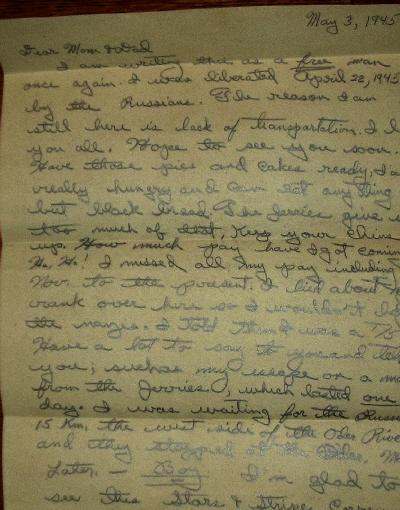 May 3, 1945
Dear Mom & Dad
I am writing this as a free man
once again. I was liberated April 22, 1945
by the Russians. The reason I am
still here is lack of transportation. I
you all. Hope to see you soon.
Have those pies and cakes ready.
really hungry and any thing
but black bread. The Jerries give
much of that, Keep your chins
up. How much pay have I got coming
Ha. Ha! I missed all my pay including
Nov. to the present. I lied about
rank over here so I wouldn't
the I told them I was a
Have a lot to say to you and
you; such as my escape on a
from the Jerries, which lasted one
day. I was waiting for the
15 Km. the west side of the Oder River
and they stopped at the Oder.
Later. — Boy I'm glad to
see the Stars & Stripes